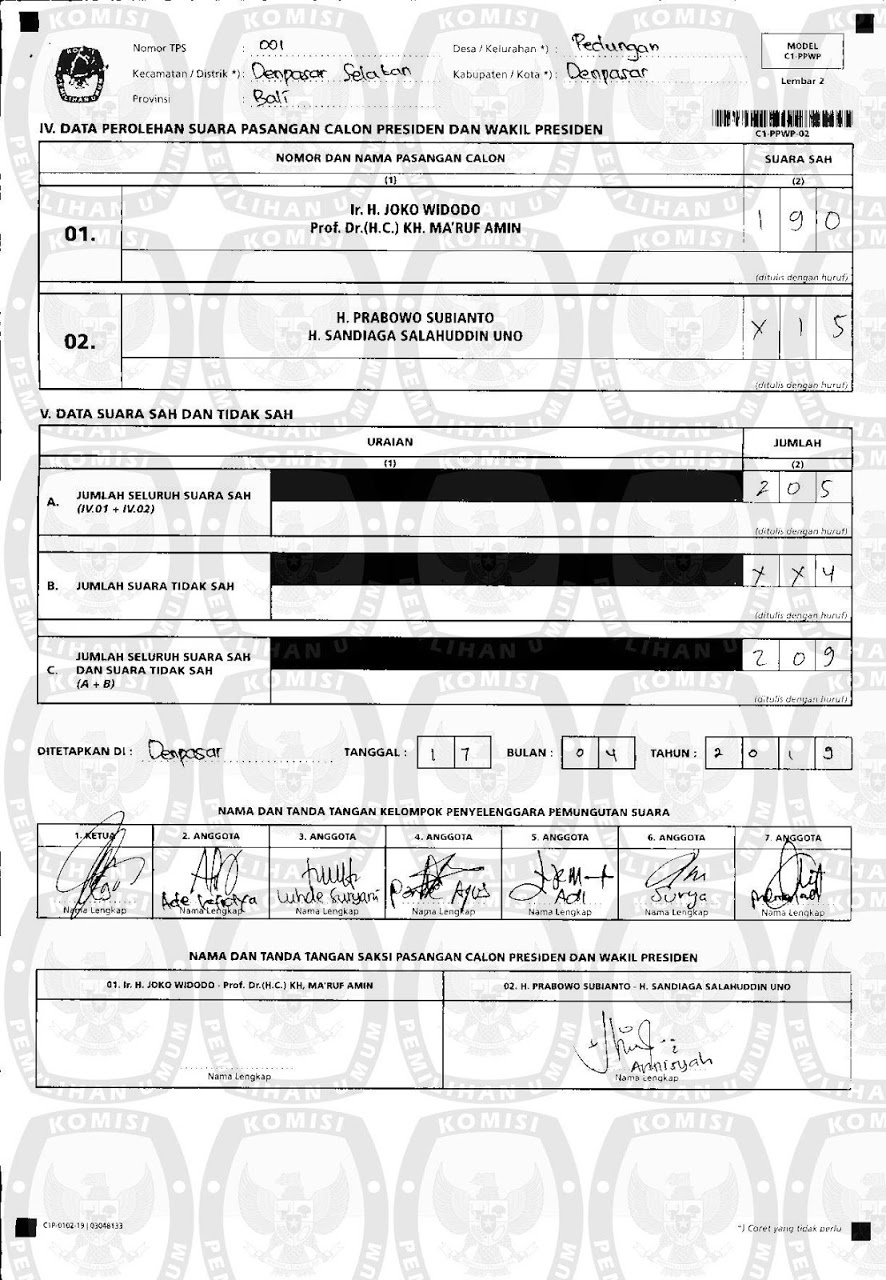 Nomor TPS : 001
Desa / Kelurahan *) : Pedungan
MODEL
C1-PPWP
Kecamatan / Distrik *) : Denpasar Selatan
Kabupaten / Kota *) : Denpasar
Lembar 2
Provinsi : Bali
IV. DATA PEROLEHAN SUARA PASANGAN CALON PRESIDEN DAN WAKIL PRESIDEN
C1-PPWP-02
NOMOR DAN NAMA PASANGAN CALON SUARA SAH
(1) (2)
01. Ir. H. JOKO WIDODO
Prof. Dr.(H.C.) KH. MA'RUF AMIN
1 9 0
(ditulis dengan huruf)
02. H. PRABOWO SUBIANTO
H. SANDIAGA SALAHUDDIN UNO
X 1 5
(ditulis dengan huruf)
V. DATA SUARA SAH DAN TIDAK SAH
URAIAN JUMLAH
(1) (2)
A. JUMLAH SELURUH SUARA SAH
(IV.01 + IV.02)
2 0 5
(ditulis dengan huruf)
B. JUMLAH SUARA TIDAK SAH
X X 4
(ditulis dengan huruf)
C. JUMLAH SELURUH SUARA SAH
DAN SUARA TIDAK SAH
(A + B)
2 0 9
(ditulis dengan huruf)
DITETAPKAN DI : Denpasar TANGGAL : 1 7 BULAN : 0 4 TAHUN : 2 0 1 9
NAMA DAN TANDA TANGAN KELOMPOK PENYELENGGARA PEMUNGUTAN SUARA
1. KETUA 2. ANGGOTA 3. ANGGOTA 4. ANGGOTA 5. ANGGOTA 6. ANGGOTA 7. ANGGOTA
Ade Luhde Suryani Agus Adi Surya
Nama Lengkap Nama Lengkap Nama Lengkap Nama Lengkap Nama Lengkap Nama Lengkap Nama Lengkap
NAMA DAN TANDA TANGAN SAKSI PASANGAN CALON PRESIDEN DAN WAKIL PRESIDEN
01. Ir. H. JOKO WIDODO - Prof. Dr.(H.C.) KH, MA'RUF AMIN
02. H. PRABOWO SUBIANTO - H. SANDIAGA SALAHUDDIN UNO
Annisyah
Nama Lengkap Nama Lengkap
C1P-0102-19 | 03048133
*) Coret yang tidak perlu
KOMISI PEMILIHAN UMUM